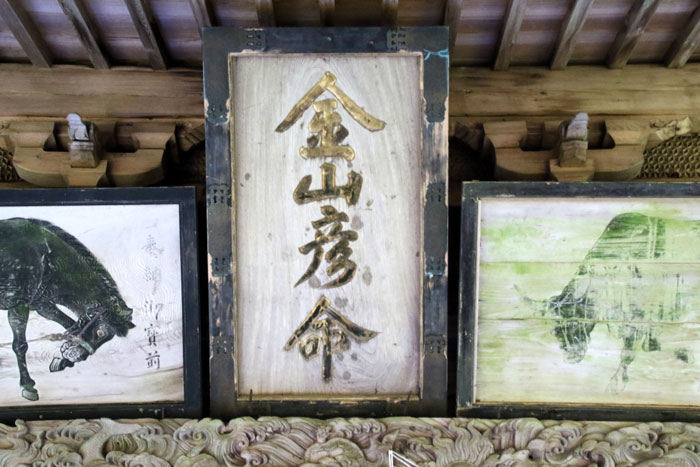 金山彦命
奉納御寳前